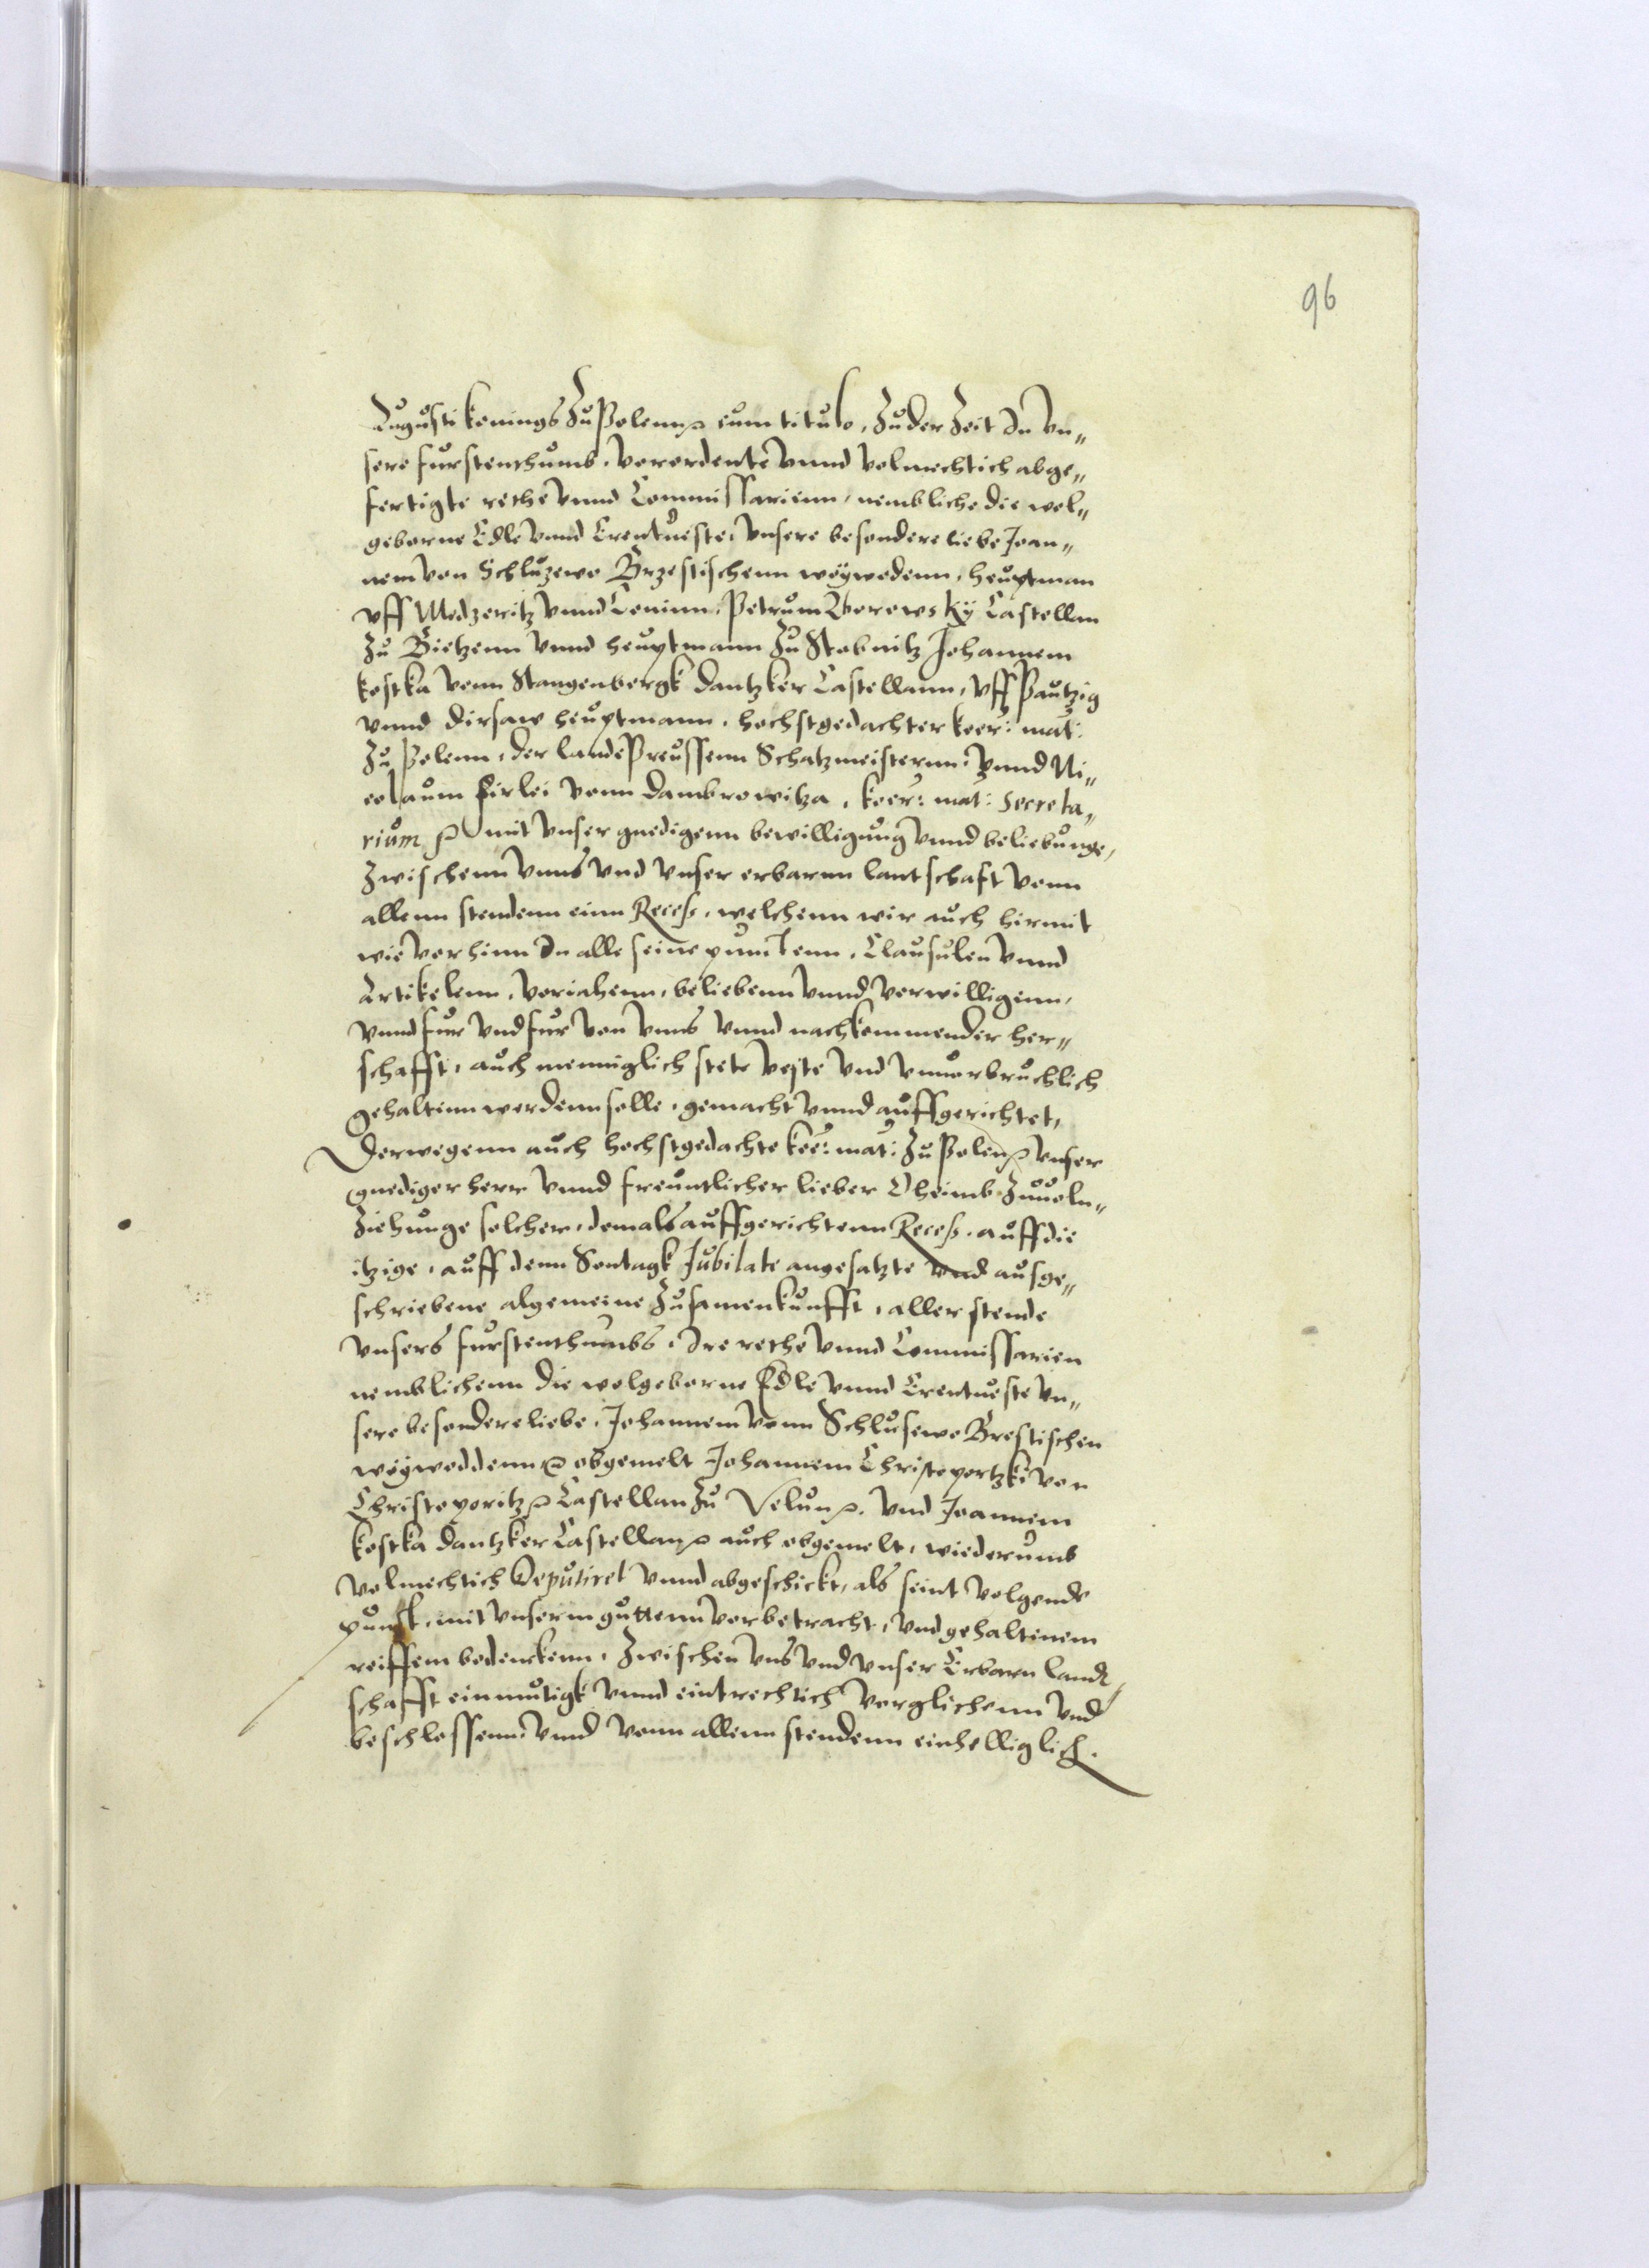 96
Augusti konings zu Polenn ꝛc cum titulo, zu der Zeit In vn„
sere furstenthumb, verordente vnnd volmechtich abge„
fertigte rethe vnnd Commissarienn, nemblich die wol„
geborne Edle vnnd Erentueste, vnsere besondere liebe Joan„
nem von Schluzewo Brzestischenn woywodenn, heuptman
vff Medzeritz vnnd Coninn, Petrum Zborowsky Castellan
zu Bietzenn vnnd heuptmann zu Stobnitz Johannem
kostka vonn Stangenbergk dantzker Castellann, vff Pautzig
vnnd dirsaw heuptmann, hochstgedachter koer: mat:
zu Polenn, der lande Preussenn Schatzmeisternn, vnnd Ni„
colaum Firlei vonn dambrowitza, koer: mat: Secreta„
rium ꝛc mit vnser gnedigenn bewilligung vnnd beliebunge,
zwischenn vnns vnd vnser erbarnn lantschaft vonn
allenn stendenn einn Recess, welchenn wir auch hirmit
wie vorhinn In alle seine punctenn, Clausulen vnnd
Artikelenn, voriahenn, beliebenn vnnd verwilligenn,
vnnd fur vnd fur von vnns vnnd nachkommender her„
schafft, auch menniglich stete veste vnd vnuorbruchlich
gehaltenn werdenn solle, gemacht vnnd auffgerichtet,
Derwegenn auch hochstgedachte koe: mat: zu Polen ꝛc vnser
gnediger herr vnnd freuntlicher lieber Oheimb zuuoln„
ziehunge solcher, domals auffgerichtenn Recess, auff die
itzige, auff denn Sontagk Jubilate angesatzte vnd ausge„
schriebene algemeine zusamenkunfft, aller stende
vnsers furstenthumbs, Ire rethe vnnd Commissarien
nemblichenn die wolgeborne Edle vnnd Erentueste vn„
sere besondere liebe, Johannem vonn Schlusewo Brestischen
woywoddenn ꝛc obgemelt Johannem Christoportzki von
Christoporitz ꝛc Castellan zu Velun ꝛc. vnd Joannem
kostka dantzker Castellan ꝛc auch obgemelt, wiederumb
volmechtich Deputiret vnnd abgeschickt, als seint volgende
punct, mit vnserm guttenn vorbetracht, vnd gehaltenem
reiffem bedenckenn, zwischen vns vnd vnser Erbarn landt
schafft einmutigk vnnd eintrechtich verglichenn vnd
beschlossenn vnnd vonn allenn stendenn einhelliglich.